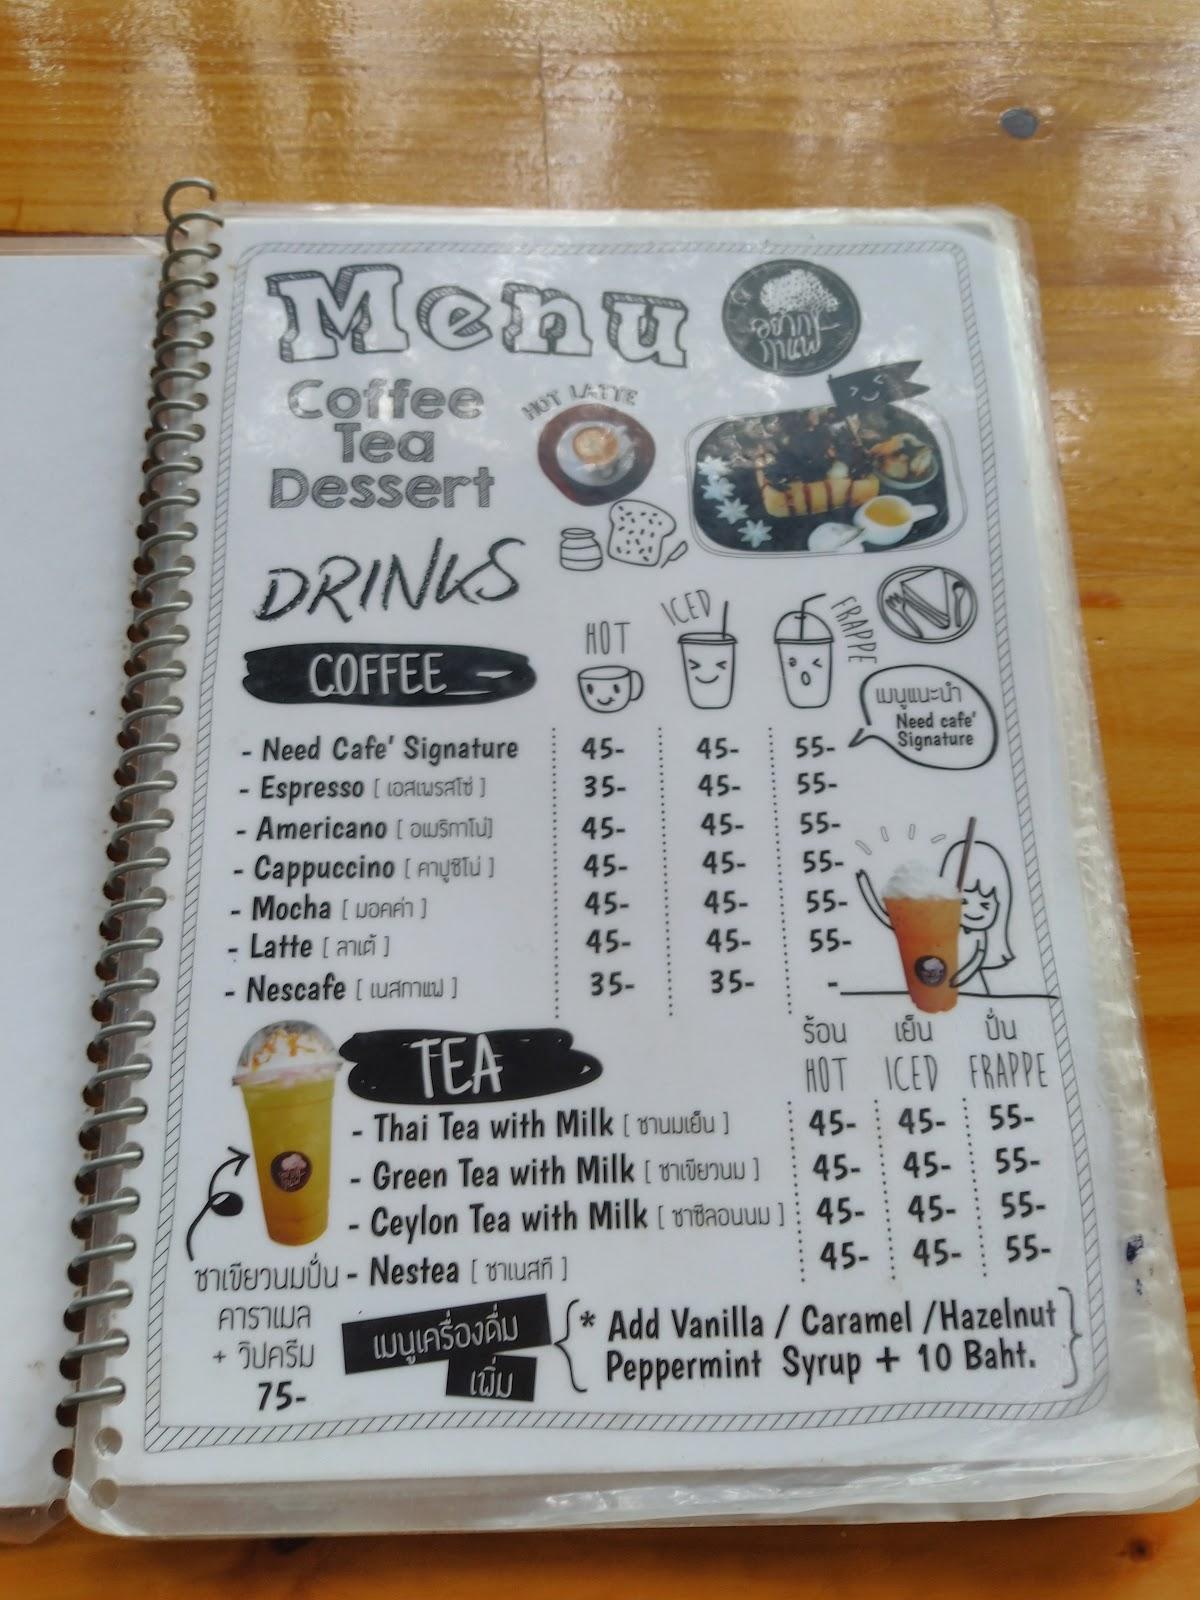 Menu
อยากกาแฟ
Coffee
Tea
Dessert
HOT LATTE
DRINKS
HOT ICED FRAPPE
COFFEE
เมนูแนะนำ
Need cafe'
Signature
- Need Cafe' Signature 45- 45- 55-
- Espresso [ เอสเพรสโซ่ ] 35- 45- 55-
- Americano [ อเมริกาโน่] 45- 45- 55-
- Cappuccino [ คาปูชิโน่ ] 45- 45- 55-
- Mocha [ มอคค่า ] 45- 45- 55-
- Latte [ ลาเต้ ] 45- 45- 55-
- Nescafe [ เนสกาแฟ ] 35- 35- -
ร้อน เย็น ปั่น
TEA HOT ICED FRAPPE
- Thai Tea with Milk [ ชานมเย็น ] 45- 45- 55-
- Green Tea with Milk [ ชาเขียวนม ] 45- 45- 55-
- Ceylon Tea with Milk [ ชาซีลอนนม ] 45- 45- 55-
- Nestea [ ชาเนสที ] 45- 45- 55-
ชาเขียวนมปั่น
คาราเมล
+ วิปครีม
75-
เมนูเครื่องดื่ม
เพิ่ม
* Add Vanilla / Caramel /Hazelnut
Peppermint Syrup + 10 Baht.